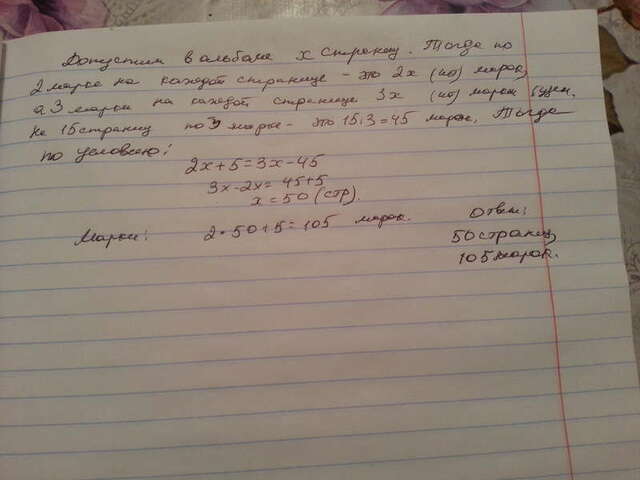 Допустим в альбоме x страниц. Тогда по
2 марки на каждой странице - это 2x (по) марок,
а 3 марки на каждой странице 3x (по) марок
На 15 страниц по 3 марке - это 15·3=45 марок. Тогда
по условию:
2x+5=3x-45
3x-2x=45+5
x=50 (стр).
Марок: 2·50+5=105 марок.
Ответ:
50 страниц,
105 марок.